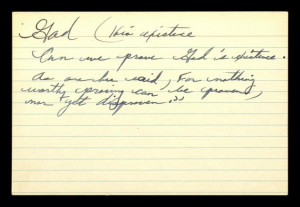 God (His existence
Can we prove God's existence.
As said, For nothing
worthy proving can be proven,
nor yet disproven."